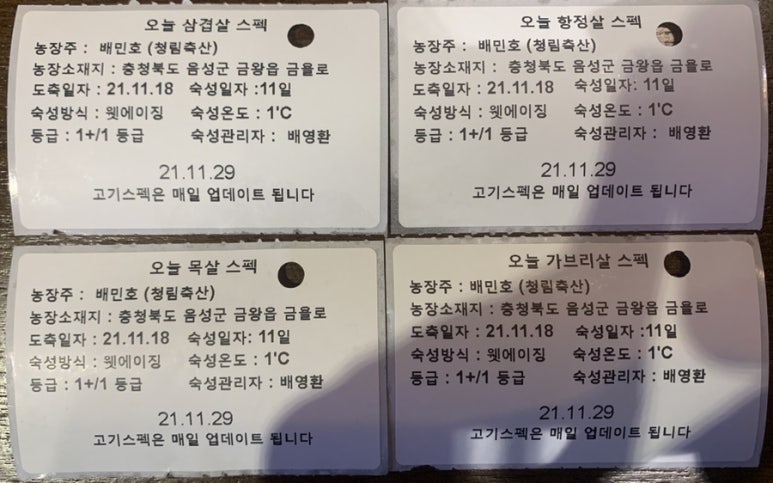 오늘 삼겹살 스펙
농장주 : 배민호 (청림축산)
농장소재지 : 충청북도 음성군 금왕읍 금율로
도축일자 : 21.11.18 숙성일자 :11일
숙성방식 : 웻에이징 숙성온도 : 1'C
등급 : 1+/1 등급 숙성관리자 : 배영환
21.11.29
고기스펙은 매일 업데이트 됩니다
오늘 항정살 스펙
농장주 : 배민호 (청림축산)
농장소재지 : 충청북도 음성군 금왕읍 금율로
도축일자 : 21.11.18 숙성일자: 11일
숙성방식 : 웻에이징 숙성온도 : 1'C
등급 : 1+/1 등급 숙성관리자 : 배영환
21.11.29
고기스펙은 매일 업데이트 됩니다
오늘 목살 스펙
농장주 : 배민호 (청림축산)
농장소재지 : 충청북도 음성군 금왕읍 금율로
도축일자 : 21.11.18 숙성일자: 11일
숙성방식 : 웻에이징 숙성온도 : 1'C
등급 : 1+/1 등급 숙성관리자 : 배영환
21.11.29
고기스펙은 매일 업데이트 됩니다
오늘 가브리살 스펙
농장주 : 배민호 (청림축산)
농장소재지 : 충청북도 음성군 금왕읍 금율로
도축일자 : 21.11.18 숙성일자 :11일
숙성방식 : 웻에이징 숙성온도 : 1'C
등급 : 1+/1 등급 숙성관리자 : 배영환
21.11.29
고기스펙은 매일 업데이트 됩니다